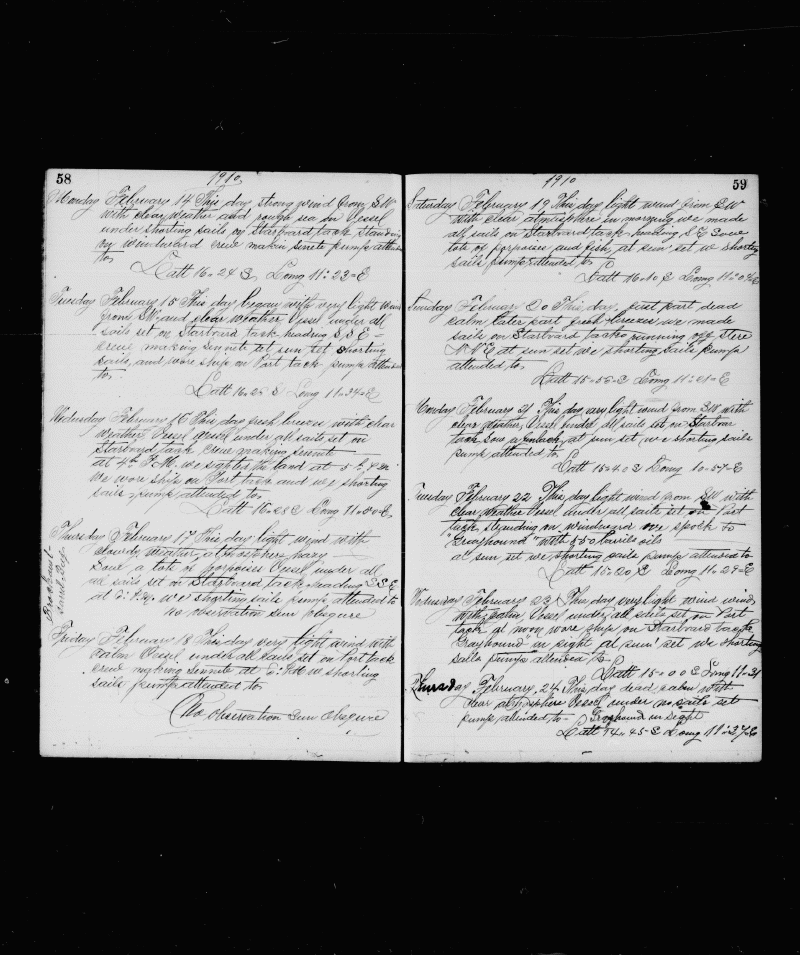 58
1910
Monday February 14 This day strong wind from S.W
with clear weather and rough sea on Vessel
under shorting sails on Starboard tack standing
by windward crue makin sinete pump attended
to,
Latt 16-24 S Long 11-23-E
Tuesday February 15 This day began with very light wind
from S.W and clear weather Vessel under all
sails set on Starboard tack heading S S E
crue making sinnete set sun set shorting
sails, and wore ship on Port tack pump attended
to
Latt 16-25 S Long 11-34-E
Wednesday February 16 This day fresh breeze with clear
weather Vessel under all sails set on
Starboard tack Crue making sinnite
at 4th P.M. we sighter the land at 5th P.M.
we wore ship on Port tack and we shorting
sails pump attended to,
Latt 16-28 S Long 11-50-E,
Thursday February 17 This day light wind with
cloudy weather, athosphere hazy
Saw a lots of porpoises Vessel under all
all sails set on Starboard tack heading S.S.E
at P.M. we shorting sails pump attended to
no observation sun obsqure
Friday February 18 This day very light wind with
calm Vessel under all sails set on Port tack
crue making sinnite at P.M. we shorting
sails pump attended to
No observation Sun Obsqure
59
1910
Saturday February 19 This day light wind from S W
with clear atmosphere in morning we made
all sails on Starboard tack heading S.E Saw
lots of porpoises and fish, at sun set we shorting
sails pump attended to
Latt 16-10 S Long 11-0 E
Sunday February 20 This day, first part dead
calm later part fresh breeze we made
sails on Starboard tack running off Stere
N.N.E at sun set we shorting sails pump
attended to,
Latt 15-55-S Long 11-21-E
Monday February 21 This day very light wind from S.W with
clear weather, Vessel under all sails set on Starboar
tack Saw a finback, at sun set, we shorting sails
pump attended to
Latt 15-40 S Long 10-57-E
Tuesday February 22 This day light wind from S.W with
clear weather Vessel under all sails set on Port
tack standing on windward we spock to
"Greyhound" with 550 barrils oils
at sun set we shorting sails pump attended to
Latt 15-20 S Long 11-29-E
Wednesday February 23 This day very light wind wind,
with calm Vessel under all sails set on Port
tack at noon wore ship on Starboard tack
Grayhound in sight at sun set we shorting
sails pump attended to
Latt 15-00 S Long 11-31
Thursday February 24 This day dead calm with
clear athosphere Vessel under no sails set
pump attended to- Greyhound in sight
Latt 14-45-S Long 11-37-E